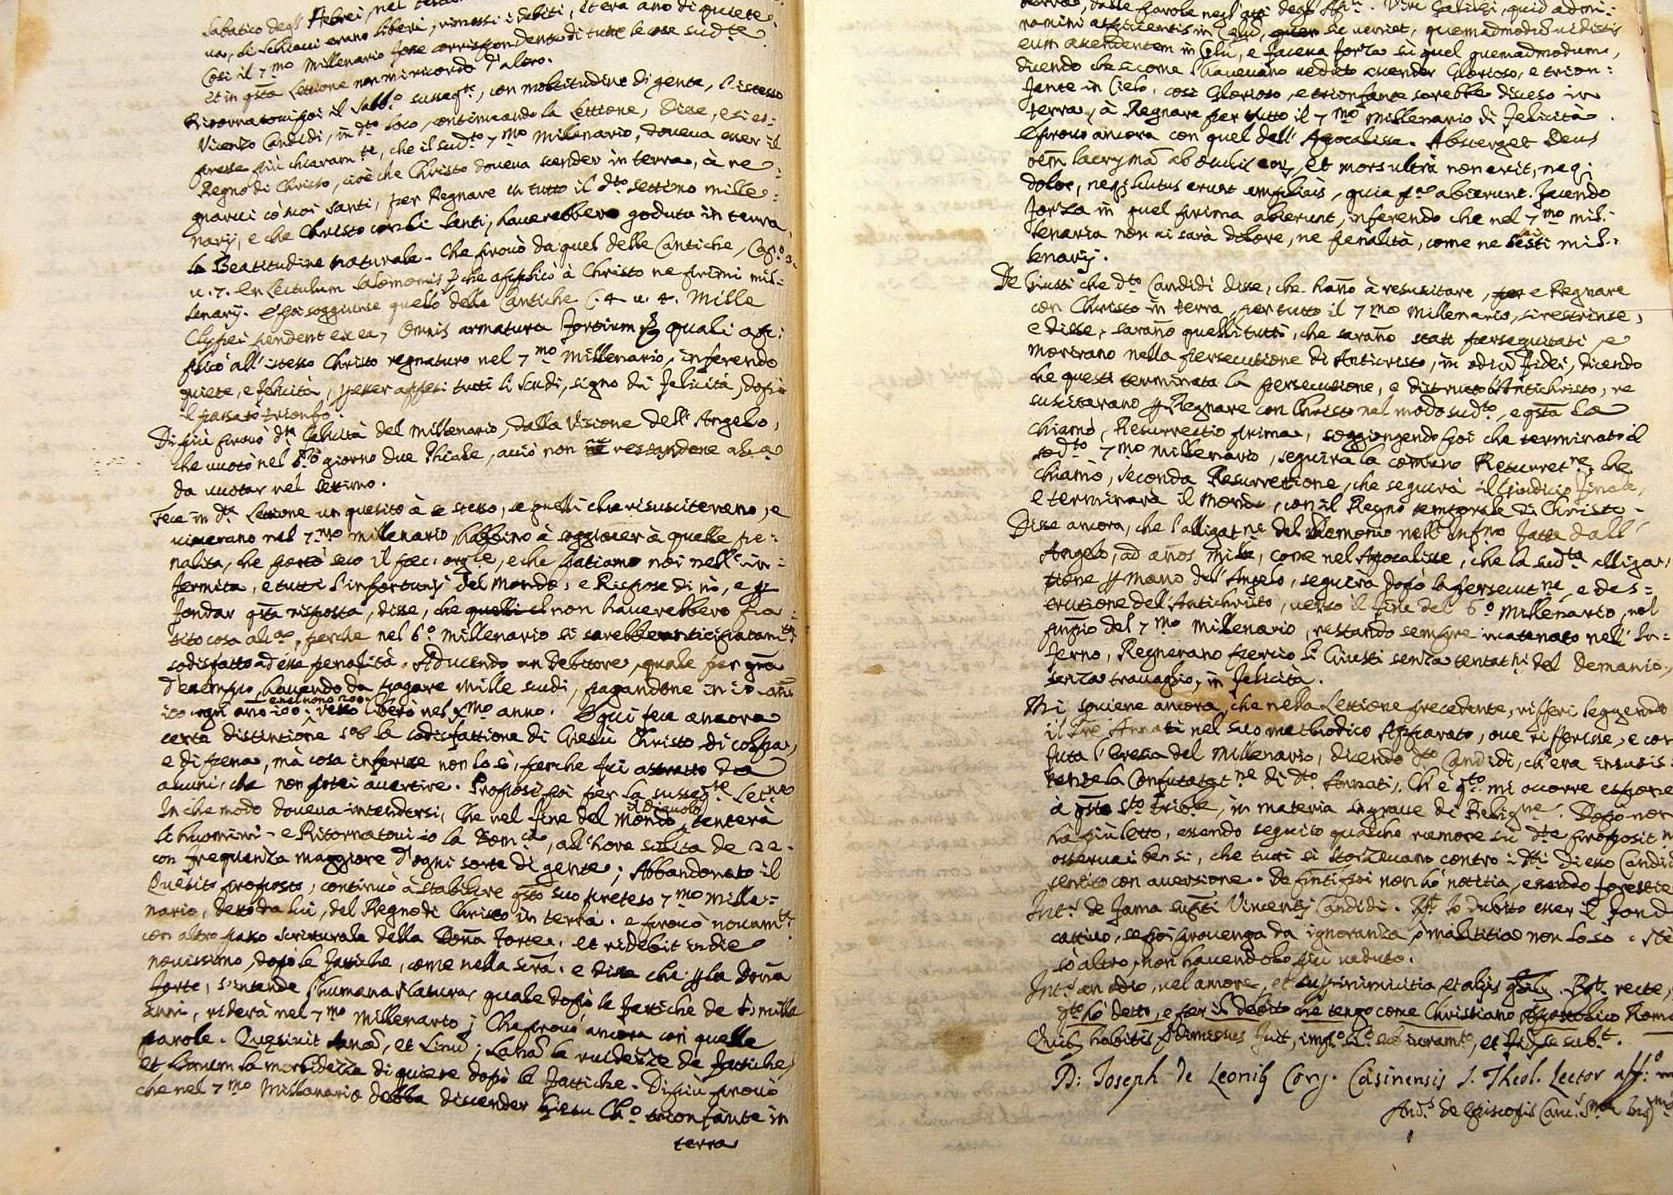 Sabatico degl'Hebrei, nel
ua, li schiaui erano liberi, rimessi i debiti, et era ano di quiete
Così il 7.mo Millenario fosse corrispondente di tutte le cose sud.te
et in q.sta Lettione non mi ricordo d'altro.
Ritornatoui poi il Sabb.o susseg.te, con moltitudine di gente, l'istesso
Vicenzo Candidi, in d.to loco, continuando la Lettione, Disse, e si es-
presse più chiaram.te, che il sud.to 7.mo Millenario, doueua esser il
Regno di Christo, cioè che Christo doueua scender in terra, à re-
gnarui co' suoi Santi, per Regnare in tutto il d.to settimo Mille-
nary, e che Christo con li Santi, hauerebbero goduta in terra
la Beatitudine naturale. Che prouò da quel delle Cantiche, Cap.o 3.
u. 7. En Lectulum Salomonis &, che applicò à Christo ne primi mil-
lenary. E poi soggiunse quello delle Cantiche C. 4. u. 4. Mille
Clypei pendent ex ea, Omnis armatura fortium &, quali ap-
plicò all'istesso Christo regnaturo nel 7.mo Millenario, inferendo
quiete, e felicità, p esser appesi tutti li scudi, segno di felicità, dopò
il passato trionfo.
Di più prouò d.ta felicità del Millenario, dalla Visione dell'Angelo,
che uuotò nel 6.to giorno due Phiale, acciò non restandone altra
da uuotar nel settimo.
Fece in d.ta Lettione un quesito à se stesso, se quelli che risusciteranno, e
uiueranno nel 7.mo Millenario, habbino à soggiacer à quelle pe-
nalità, che portò seco il pec.: orig.le, e che patiamo noi nell'in-
fermità, e tutti l'infortunij del Mondo, e Rispose di nò, e p
fondar q.sta risposta, disse, che quelli non hauerebbero pa-
tito cosa alc.a, perche nel 6.o Millenario si sarebbe anticipatam.te
sodisfatto ad esse penalità. Aducendo un debitore, quale per
d'esempio, hauendo da pagare mille scudi, pagandone in
100 ogni anno nel X.mo anno. E qui fece ancora
certa distintione sob la sodisfattione di Giesù Christo di colpa,
e di pena, mà cosa inferisse non lo sò, perche fui astratto da
alcuni, che non potei auertire. Propose poi per la susseg.te Let.ne
In che modo doueua intendersi, che nel fine del mondo il Diauolo tenterà
le huomini. e Ritornatoui io la Dom.ca, all'hora solita de 22.
con frequenza maggiore d'ogni sorte di gente; Abbandonato il
Quesito proposto, continuò à stabilire q.sto suo preteso 7.mo Mille-
nario, detto da lui, del Regno di Christo in terra. e prouò nouam.te
con altro passo scritturale della Donna forte, et ridebit in die
nouissimo, dopò le fattiche, come nella scrit.a. e disse che p la Donna
forte, s'intende l'humana Natura, quale dopò le fattiche de 6. milla
anni, riderà nel 7.mo Millenario; Che prouò ancora con quelle
parole. Quesiuit Lanam, et Linum; Lanam le ruuidezze de fattiche,
et Linum la morbidezza di quiete dopò le fattiche. Di più prouò
che nel 7.mo Millanario debba discender Giesu Ch.o trionfante in
terra
terra, dalle parole negl'atti degl'Ap.li. Viri Galilei, quid admi-
ramini aspicientes in Celum, sic ueniet, quemadmodum uidistis
eum ascendentem in Celum, e faceua forza su quel quemadmodum,
dicendo che sicome l'haueuano ueduto ascender Glorioso, e trion-
fante in Cielo, così Glorioso, e trionfante sarebbe disceso in
terra, à Regnare per tutto il 7.mo Millenario di felicità.
E prouò ancora con quel dell'Apocalisse. Absterget Deus
omnem lacrymam ab oculis eor., et mors ultrà non erit, neq.
dolor, neq. luctus erunt amplius, quia p.a abierunt. facendo
forza in quel prima abierunt, inferendo che nel 7.mo mil-
lenario non ui sarà dolore, ne penalità, come ne sesti mil-
lenary.
De Giusti che d.to Candidi disse, che hanno à resuscitare, e Regnare
con Christo in terra, per tutto il 7.mo Millenario, si restrinse,
e disse, saranno quelli tutti, che saranno stati perseguitati, e
moriranno nella persecutione di Anticristo, in odium fidei, dicendo
che questi terminata la persecutione, e distrutto l'Antichristo, re
suscitaranno p Regnare con Christo nel modo sud.to, e q.sta la
chiamò, Resurrectio prima, soggiongendo poi che terminato il
sod.to 7.mo millenario, seguirà la comune Resurret.ne, che
chiamò, seconda Resurrettione, che seguirà il Giudicio finale,
e terminarà il Mondo, con il Regno temporale di Christo.
Disse ancora, che l'alligat.ne del Demonio nell'Inferno fatta dall'
Angelo, ad años mille, come nel Apocalisse, che la sud.ta alliga-
tione p mano dell'Angelo, seguirà dopò la persecut.ne, e des-
trutione dell'Antichristo, uerso il fine del 6.o Millenario, nel
prin̄.io del 7.mo Millenario, restando sempre incatenato nell'In-
ferno, Regnerano perciò li Giusti senza tentat.ni del Demonio,
senza trauaglio, in felicità.
Mi souiene ancora, che nella Lettione precedente, rifferì leggendo
il Pre Annati nel suo methodico Apparato, oue rifferisse, e con
futa l'Eresia del Millenario, dicendo d.to Candidi, ch'era insussis-
tente la Confutat.ne di d.to Annati, Ch'è q.to mi occorre esporre
à q.sto S.to Trib.le, in materia sì graue di Relig.ne. Dopò non
hà più letto, essendo seguito qualche rumore su d.te proposit.ni
osseruai ben si, che tutti si storceuano contro i d.ti di esso Candidi
sentito con auersione. De Santi poi non hò notitia, essendo forestie
Int.s de fama sup.ti Vincenty Candidi. R.t Io dubito esser il fond
cattiuo, se poi prouenga da ignoranza, ò malitia non lo so. ne
sò altro, non hauendolo più ueduto.
Int.s an odio, uel amore, et inimicitia, et alijs g.libus. R.t recte,
q.to hò detto, e per il debito che tengo come Christiano Apostolico Roma
Quib. habitis dimissus fuit, imp.o si.o sub iuram.to, et fid. se sub.t.
D: Joseph de Leonibus Cong. Casinensis S. Theol. Lector aff.o
And.s de Episcopis Canc.